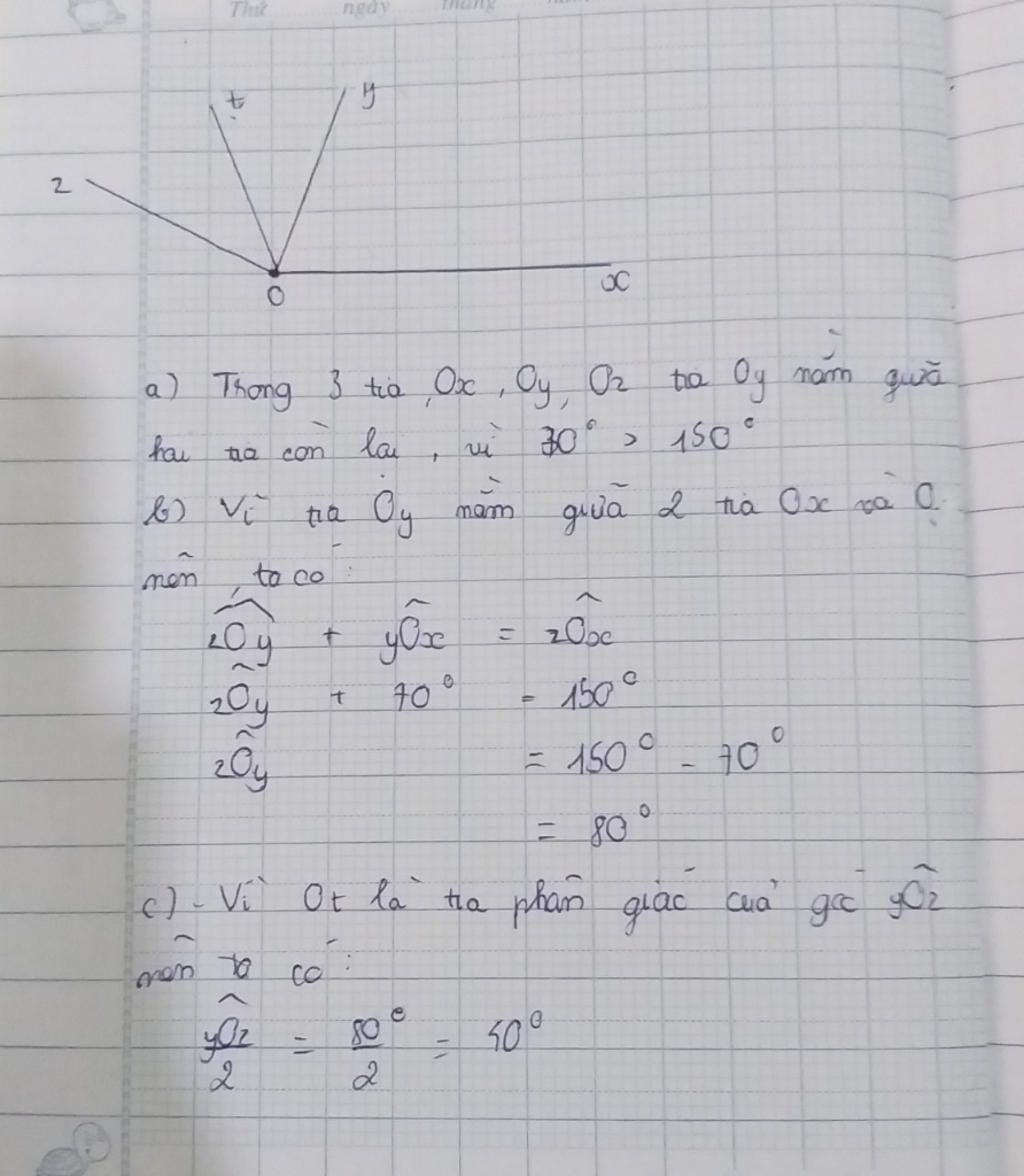 Thứ ngày tháng
t y
z
O x
a) Trong 3 tia Ox, Oy, Oz tia Oy nằm giữa
hai tia còn lại, vì 70° > 150°
b) Vì tia Oy nằm giữa 2 tia Ox và O
nên, ta có:
zOy + yOx = zOx
zOy + 70° = 150°
zOy = 150° - 70°
= 80°
c) - Vì Ot là tia phân giác của góc yOz
nên ta có:
yOz/2 = 80°/2 = 40°